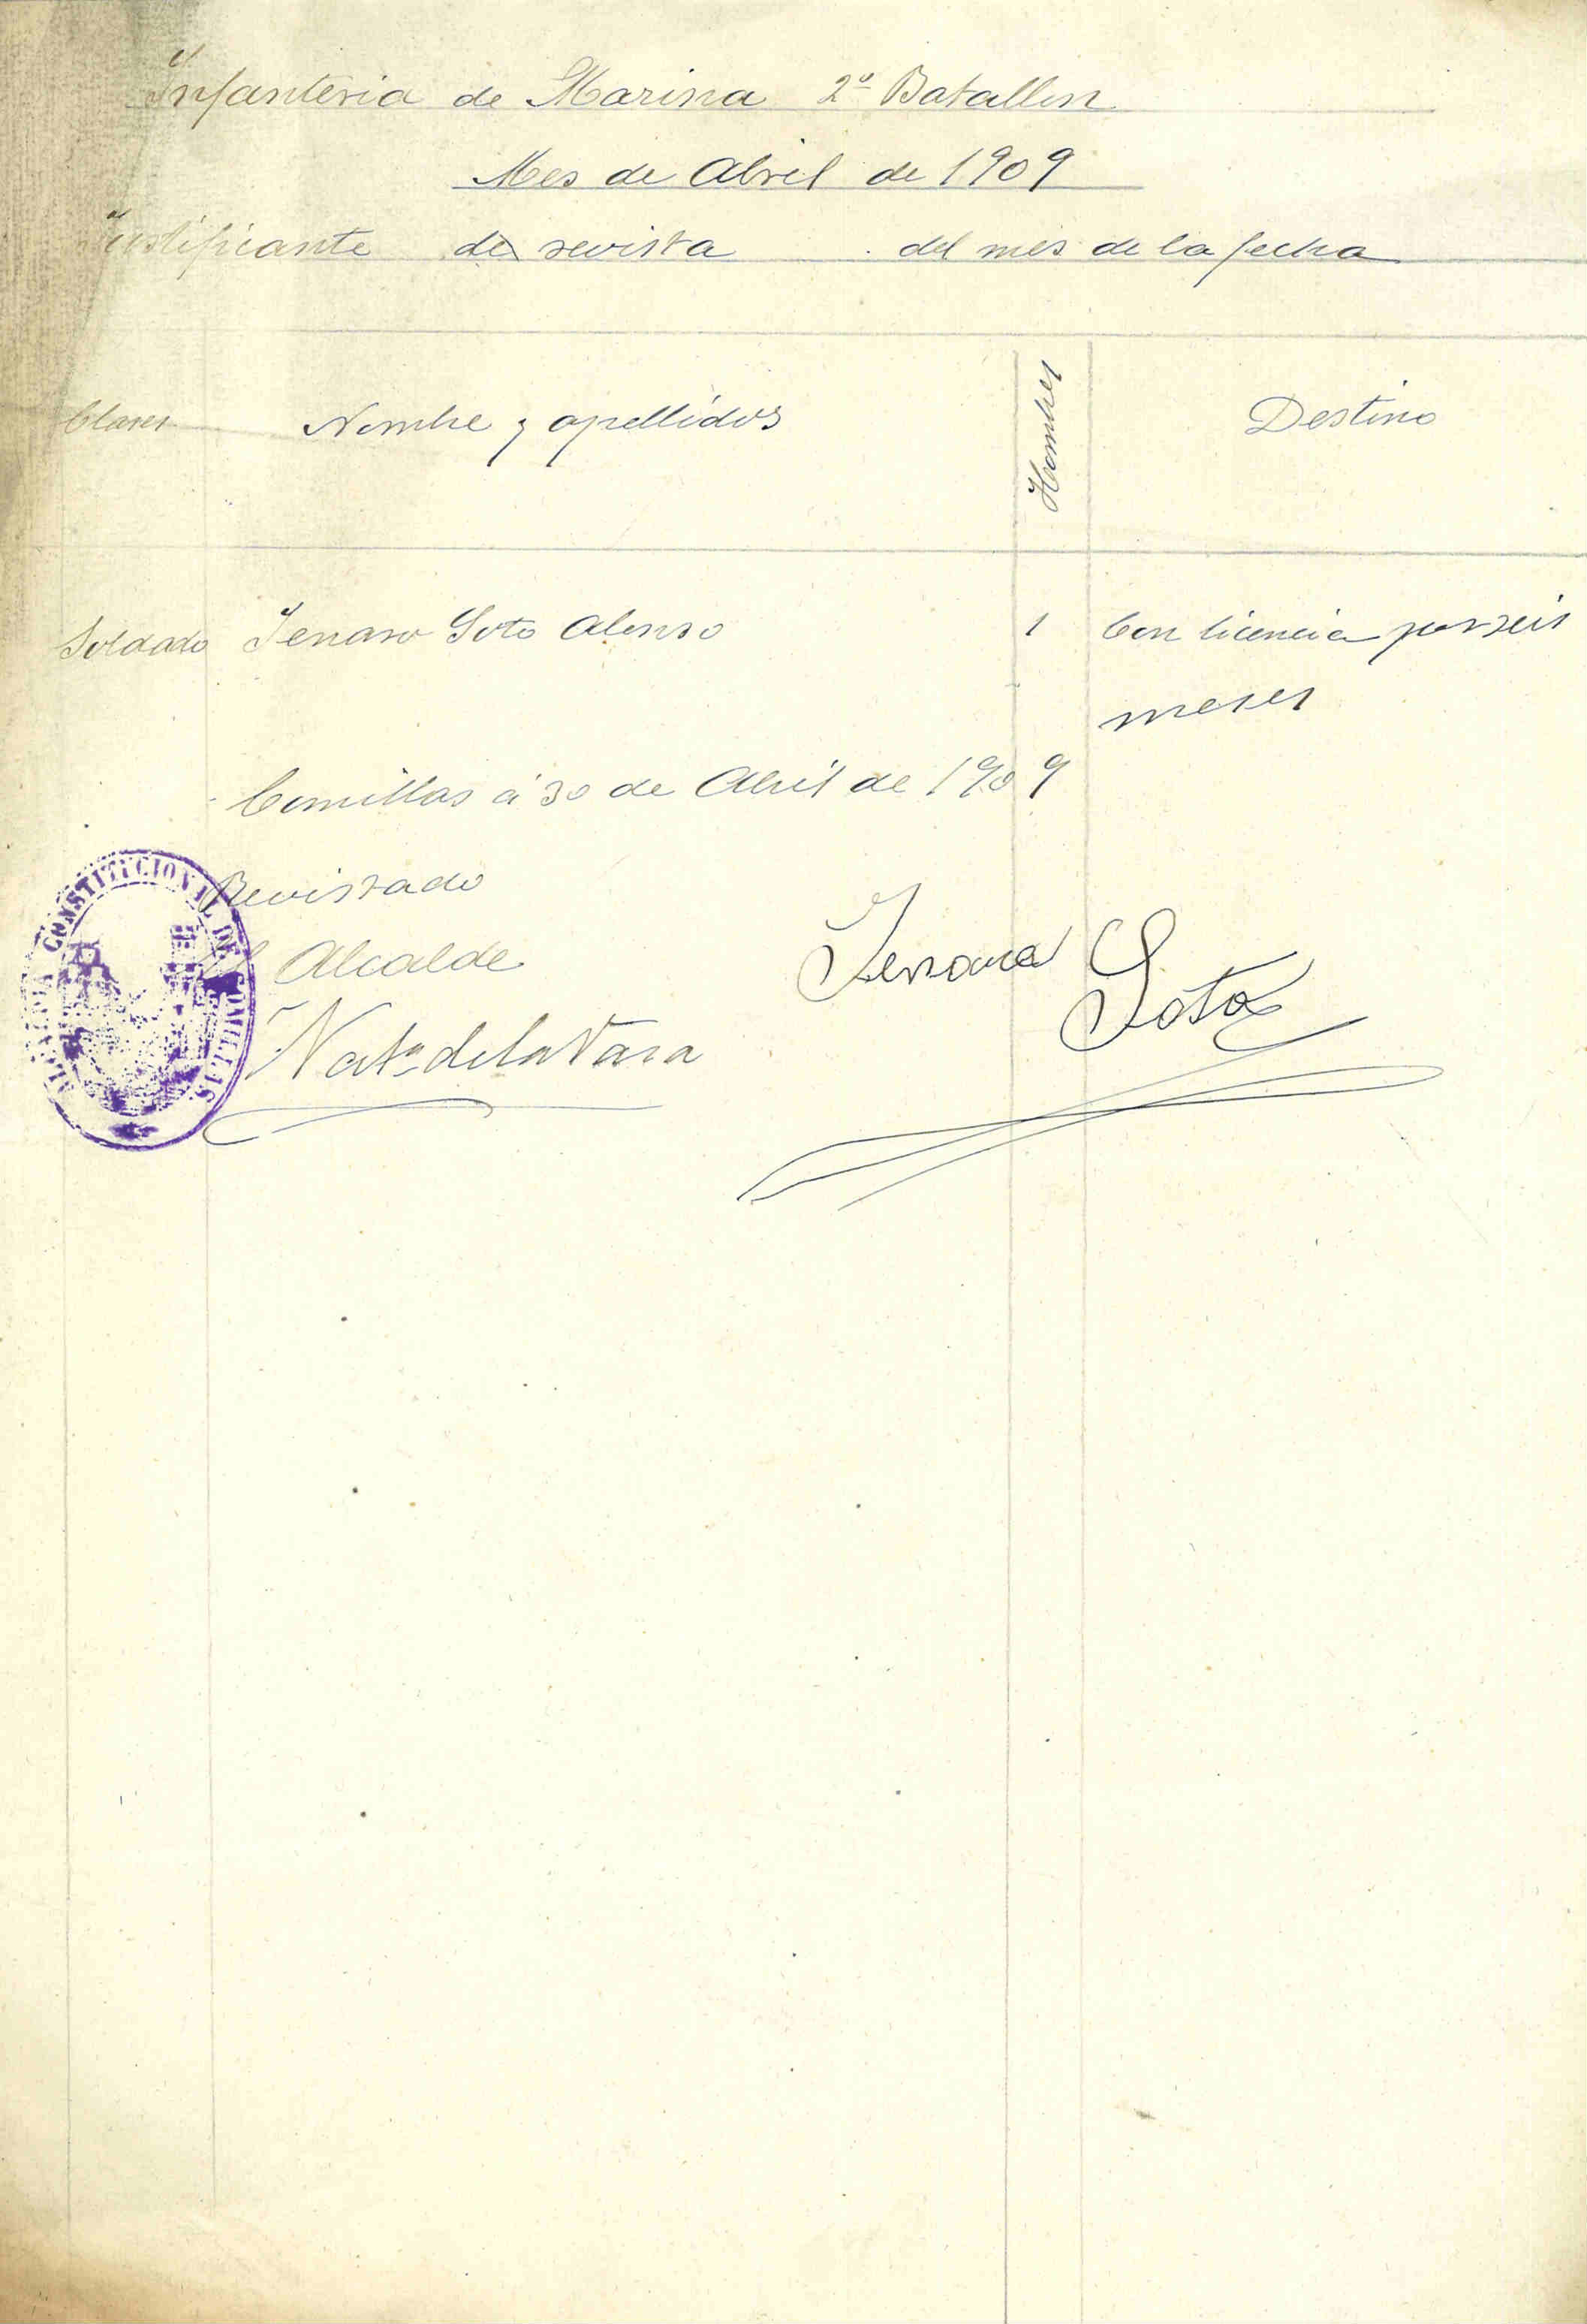 Infanteria de Marina 2º Batallon
Mes de Abril de 1909
Justificante de revista del mes de la fecha
Clases Nombre y apellidos Hombres Destino
Soldado Jenaro Soto Alonso 1 Con licencia por seis
meses
Comillas á 30 de Abril de 1909
Revistado
El Alcalde
Jenaro
Soto
Nat.º de la Vara
ALCALDIA CONSTITUCIONAL DE COMILLAS